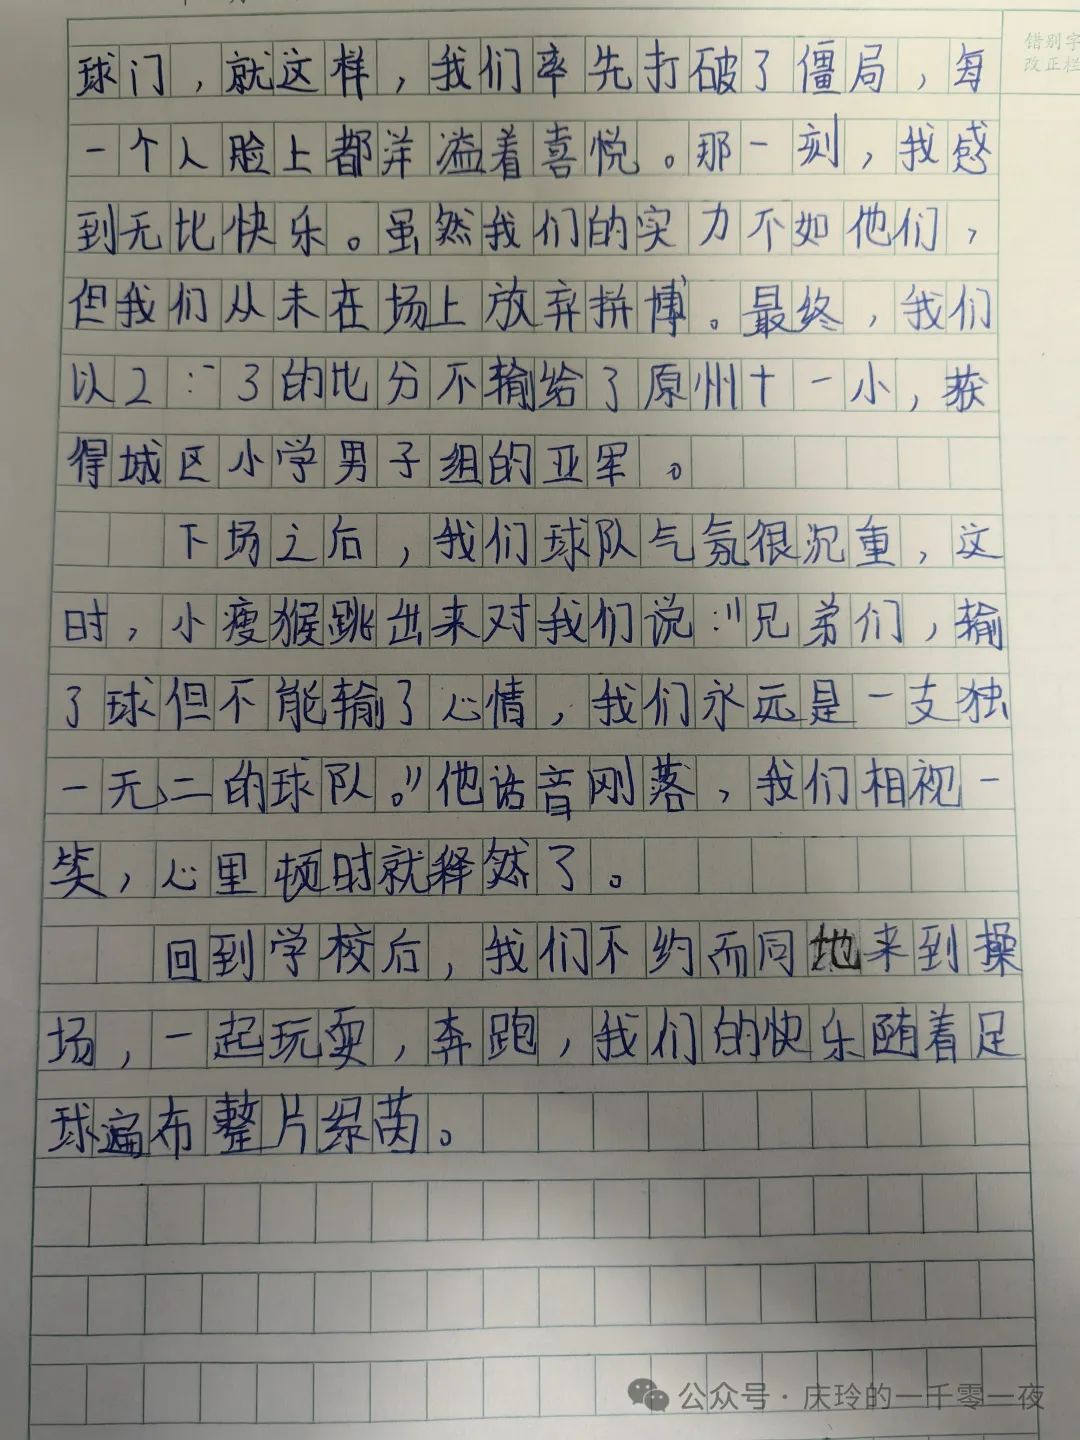 错别字
改正栏
球门，就这样，我们率先打破了僵局，每
一个人脸上都洋溢着喜悦。那一刻，我感
到无比快乐。虽然我们的实力不如他们，
但我们从未在场上放弃拼博。最终，我们
以2：3的比分不输给了原州十一小，获
得城区小学男子组的亚军。
下场之后，我们球队气氛很沉重，这
时，小瘦猴跳出来对我们说："兄弟们，输
了球但不能输了心情，我们永远是一支独
一无二的球队。"他话音刚落，我们相视一
笑，心里顿时就释然了。
回到学校后，我们不约而同地来到操
场，一起玩耍，奔跑，我们的快乐随着足
球遍布整片绿茵。
公众号·庆玲的一千零一夜